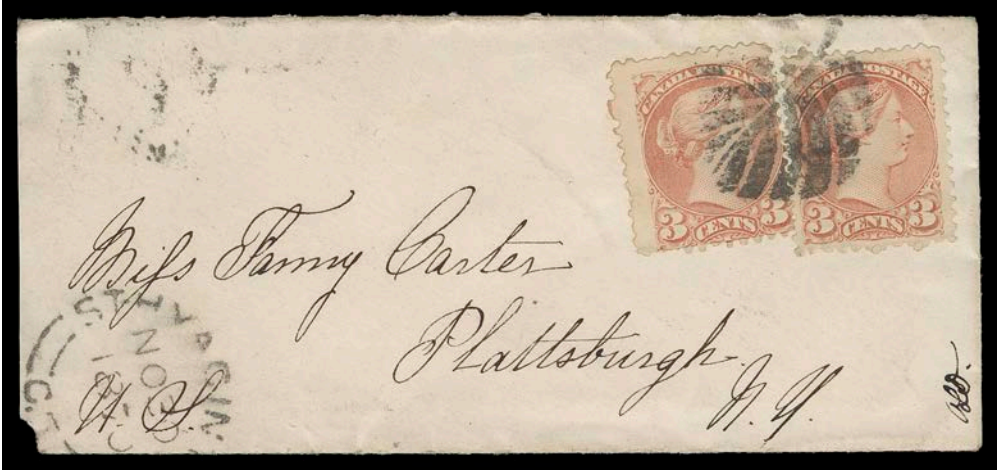 CANADA POSTAGE
3 CENTS 3
CANADA POSTAGE
3 CENTS 3
Miss Fanny Carter
Plattsburgh
N.Y.
U.S.
ST HYACIN
NO
C.E.